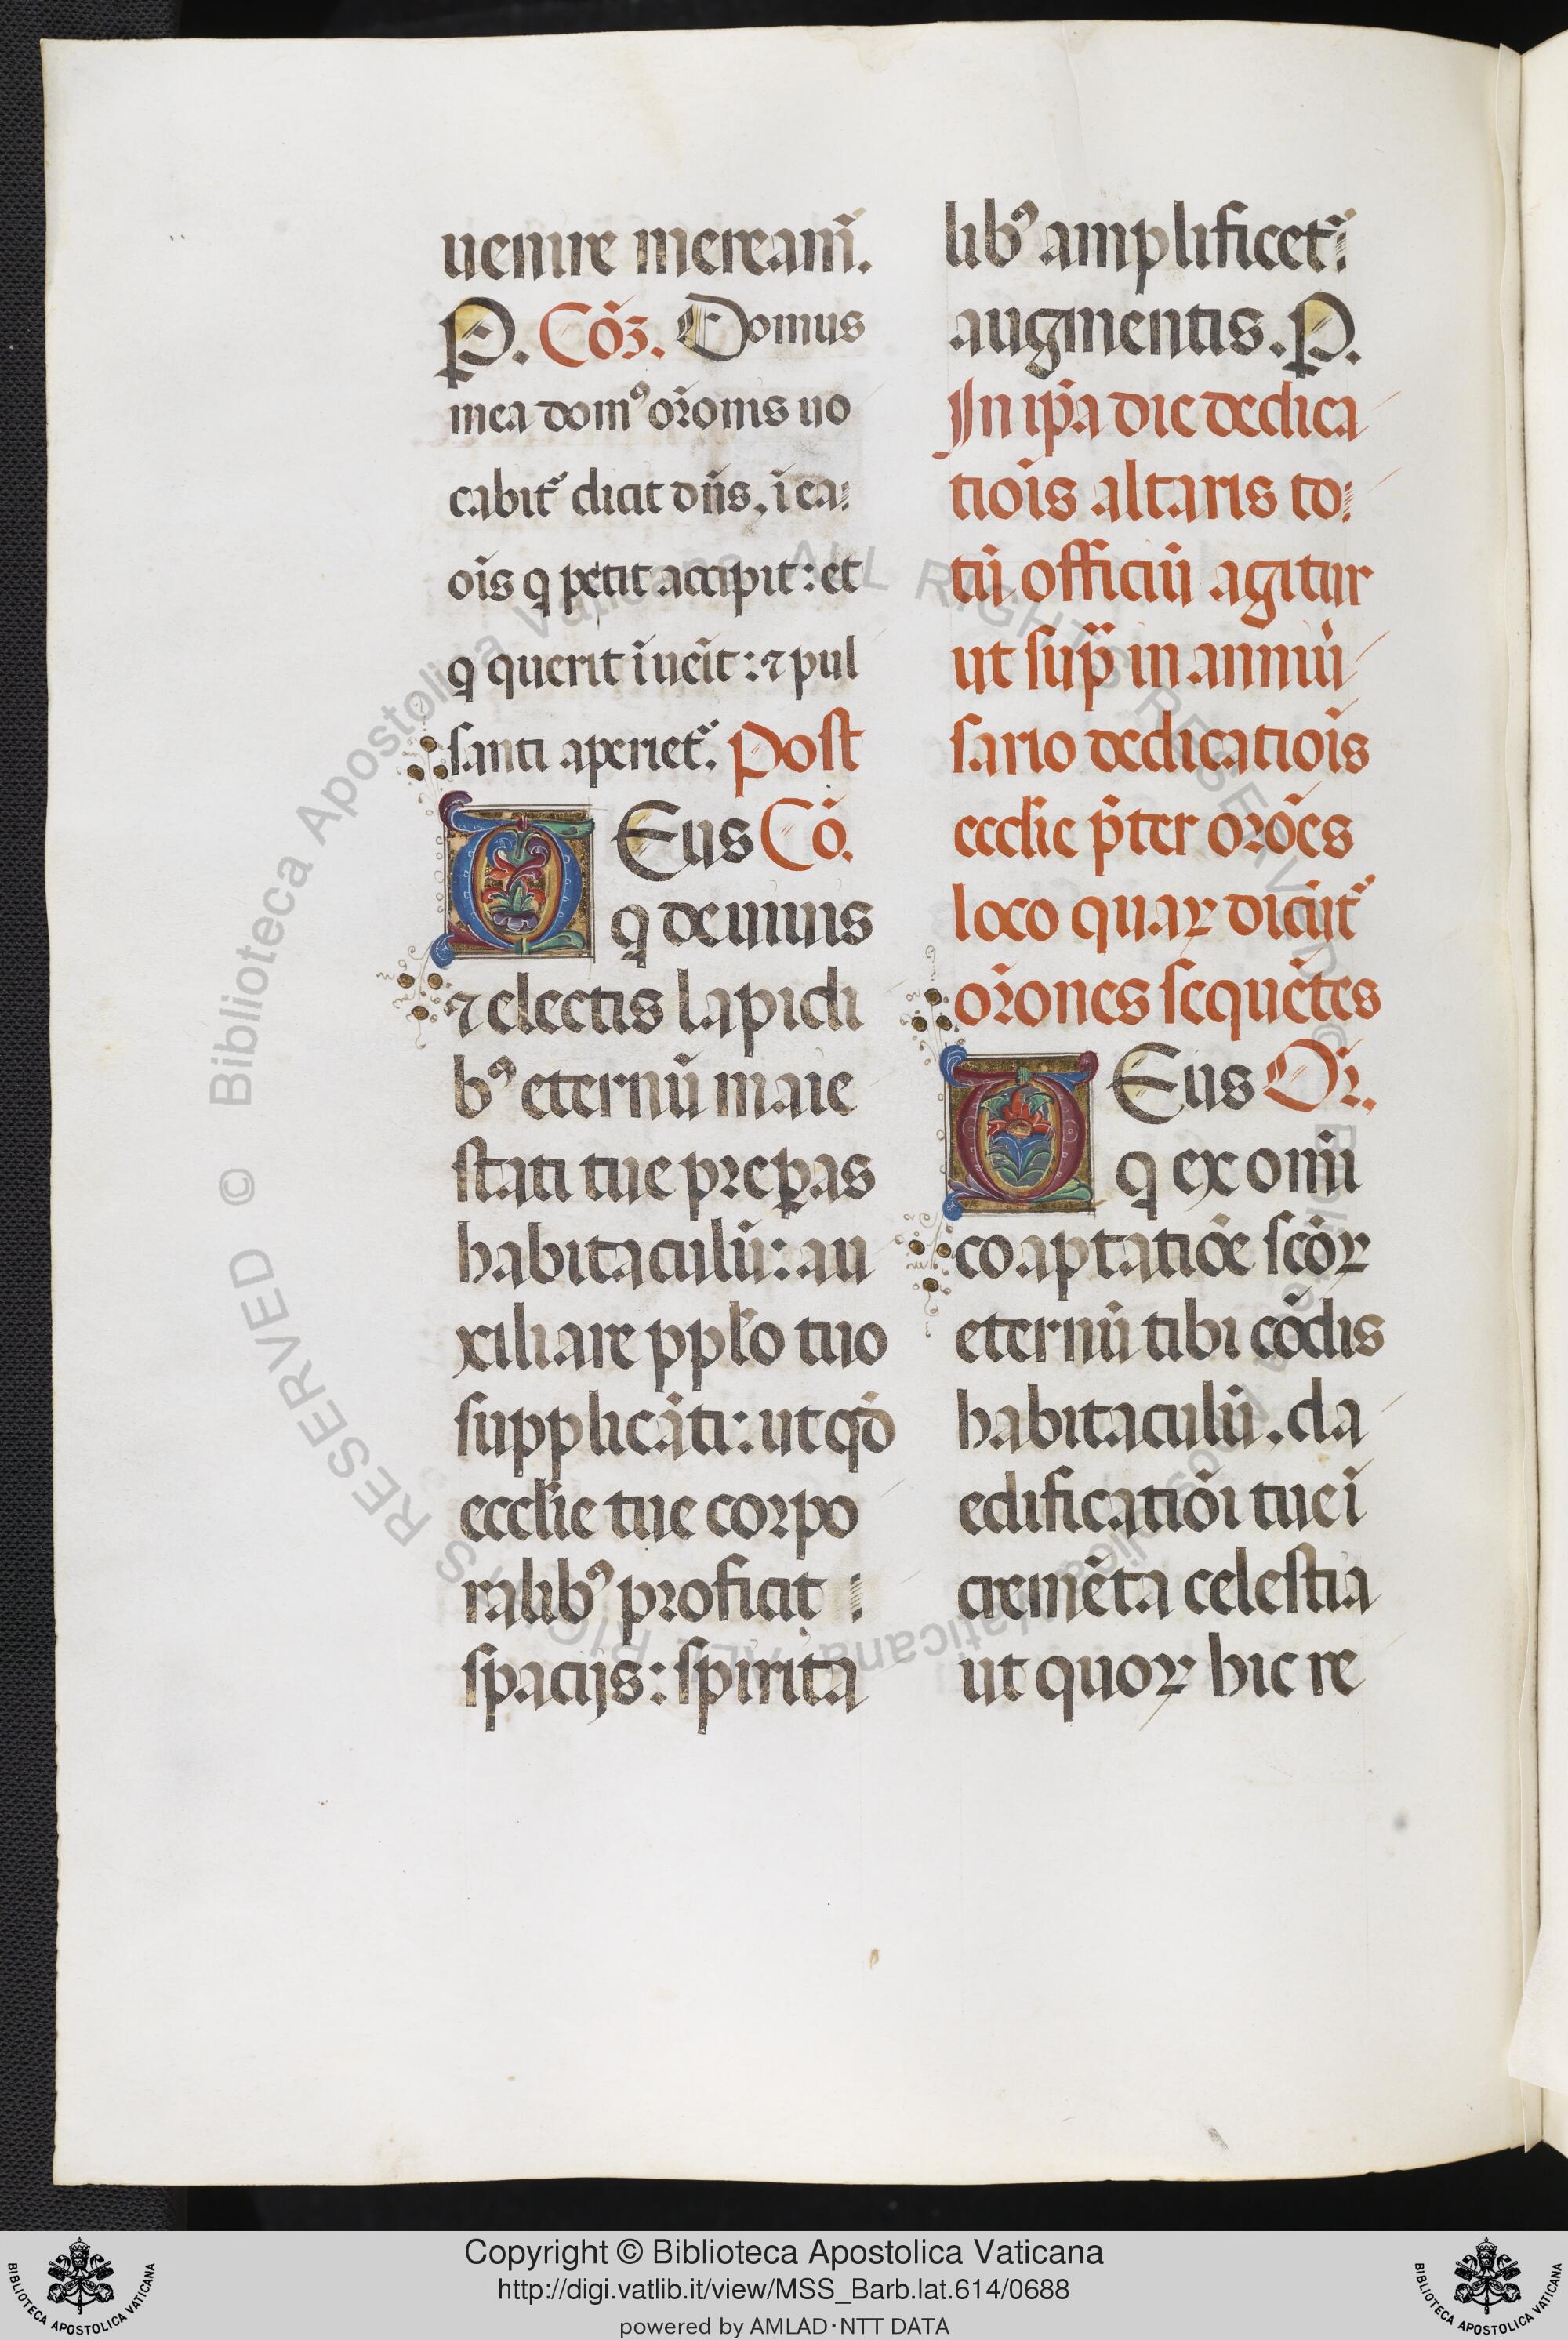 uenire meream̃.
P. Cõ3. Domus
mea domꝰ or̃onis uo
cabit᷑ dicit dñs, ĩ ea:
oĩs q petit accipit: et
q querit ĩueĩt: ⁊ pul
santi aperiet᷑. Post
DEus Cõ.
q de uiuis
⁊ electis lapidi
bꝰ eternũ maie
stati tue preꝑas
habitaculũ: au
xiliare pplo tuo
supplicãti: ut qđ
ecclie tue corpo
ralibꝰ proficit
spacijs: spirita
libꝰ amplificet᷑
augmentis. P.
In ip̃a die dedica
tiõis altaris to
tũ officiũ agitur
ut sup̃ in anniũ
sario dedicatiõis
ecclie p̃ter orões
loco quaꝝ dicũt᷑
or̃ones sequẽtes
DEus Or̃.
q ex omĩ
coaptatiõe scõꝝ
eternũ tibi cõdis
habitaculũ. da
edificatiõi tue ĩ
cremẽta celestia
ut quoꝝ hic re
Copyright © Biblioteca Apostolica Vaticana
http://digi.vatlib.it/view/MSS_Barb.lat.614/0688
powered by AMLAD·NTT DATA
BIBLIOTECA APOSTOLICA VATICANA
BIBLIOTECA APOSTOLICA VATICANA
© Biblioteca Apostolica Vaticana ALL RIGHTS RESERVED